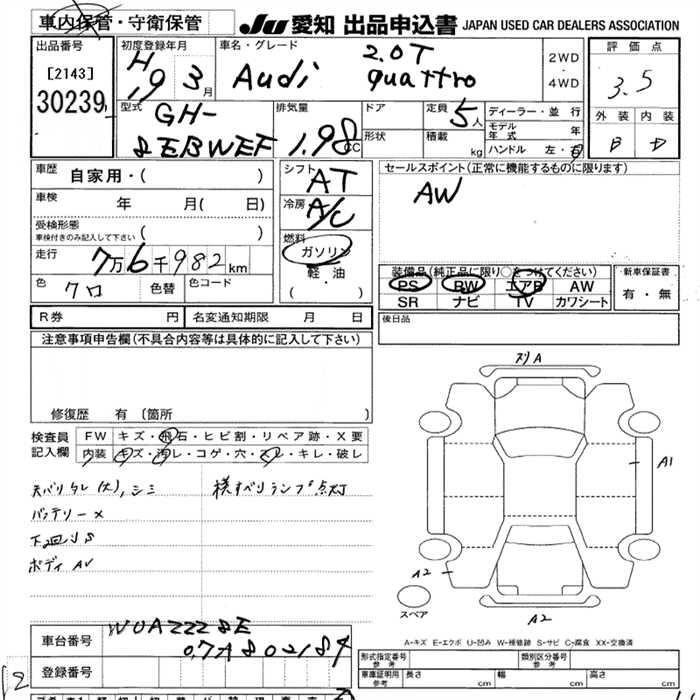 車内保管・守衛保管
JU 愛知 出品申込書 JAPAN USED CAR DEALERS ASSOCIATION
出品番号
[2143]
30239
初度登録年月
H19 3月
車名・グレード
Audi 2.0T quattro
2WD
・
4WD
評価点
3.5
外装 内装
B D
型式
GH-
8EBWEF
排気量
1.98cc
ドア
形状
定員 5人
積載 kg
ディーラー・並行
モデル年式 年
ハンドル 左・右
車歴
自家用・( )
車検
年 月( 日)
受検形態
車検付きのみ記入して下さい ( )
走行
7万6千982km
色
クロ
色替
色コード
シフト
AT
冷房
A/C
燃料
ガソリン
軽・油
( ・ )
セールスポイント(正常に機能するものに限ります)
AW
装備品(純正品に限り○をつけてください)
PS PW エアB AW
SR ナビ TV カワシート
新車保証書
有・無
R券 円 名変通知期限 月 日
後日品
注意事項申告欄(不具合内容等は具体的に記入して下さい)
修復歴 有 〔箇所 〕
検査員
記入欄
FW キズ・飛石・ヒビ割・リペア跡・X要
内装 キズ・汚レ・コゲ・穴・スレ・キレ・破レ
天バリタレ(大),シミ 横すべりランプ点灯
バッテリーX
下廻りS
ボディAV
スリA
A1
A2
A2
スペア
A-キズ E-エクボ U-凹み W-補修跡 S-サビ C-腐食 XX-交換済
車台番号
WUAZZZ8E
07A802184
登録番号
形式指定番号
参考
類別区分番号
参考
車庫証明用
参考
長さ cm 幅 cm 高さ cm